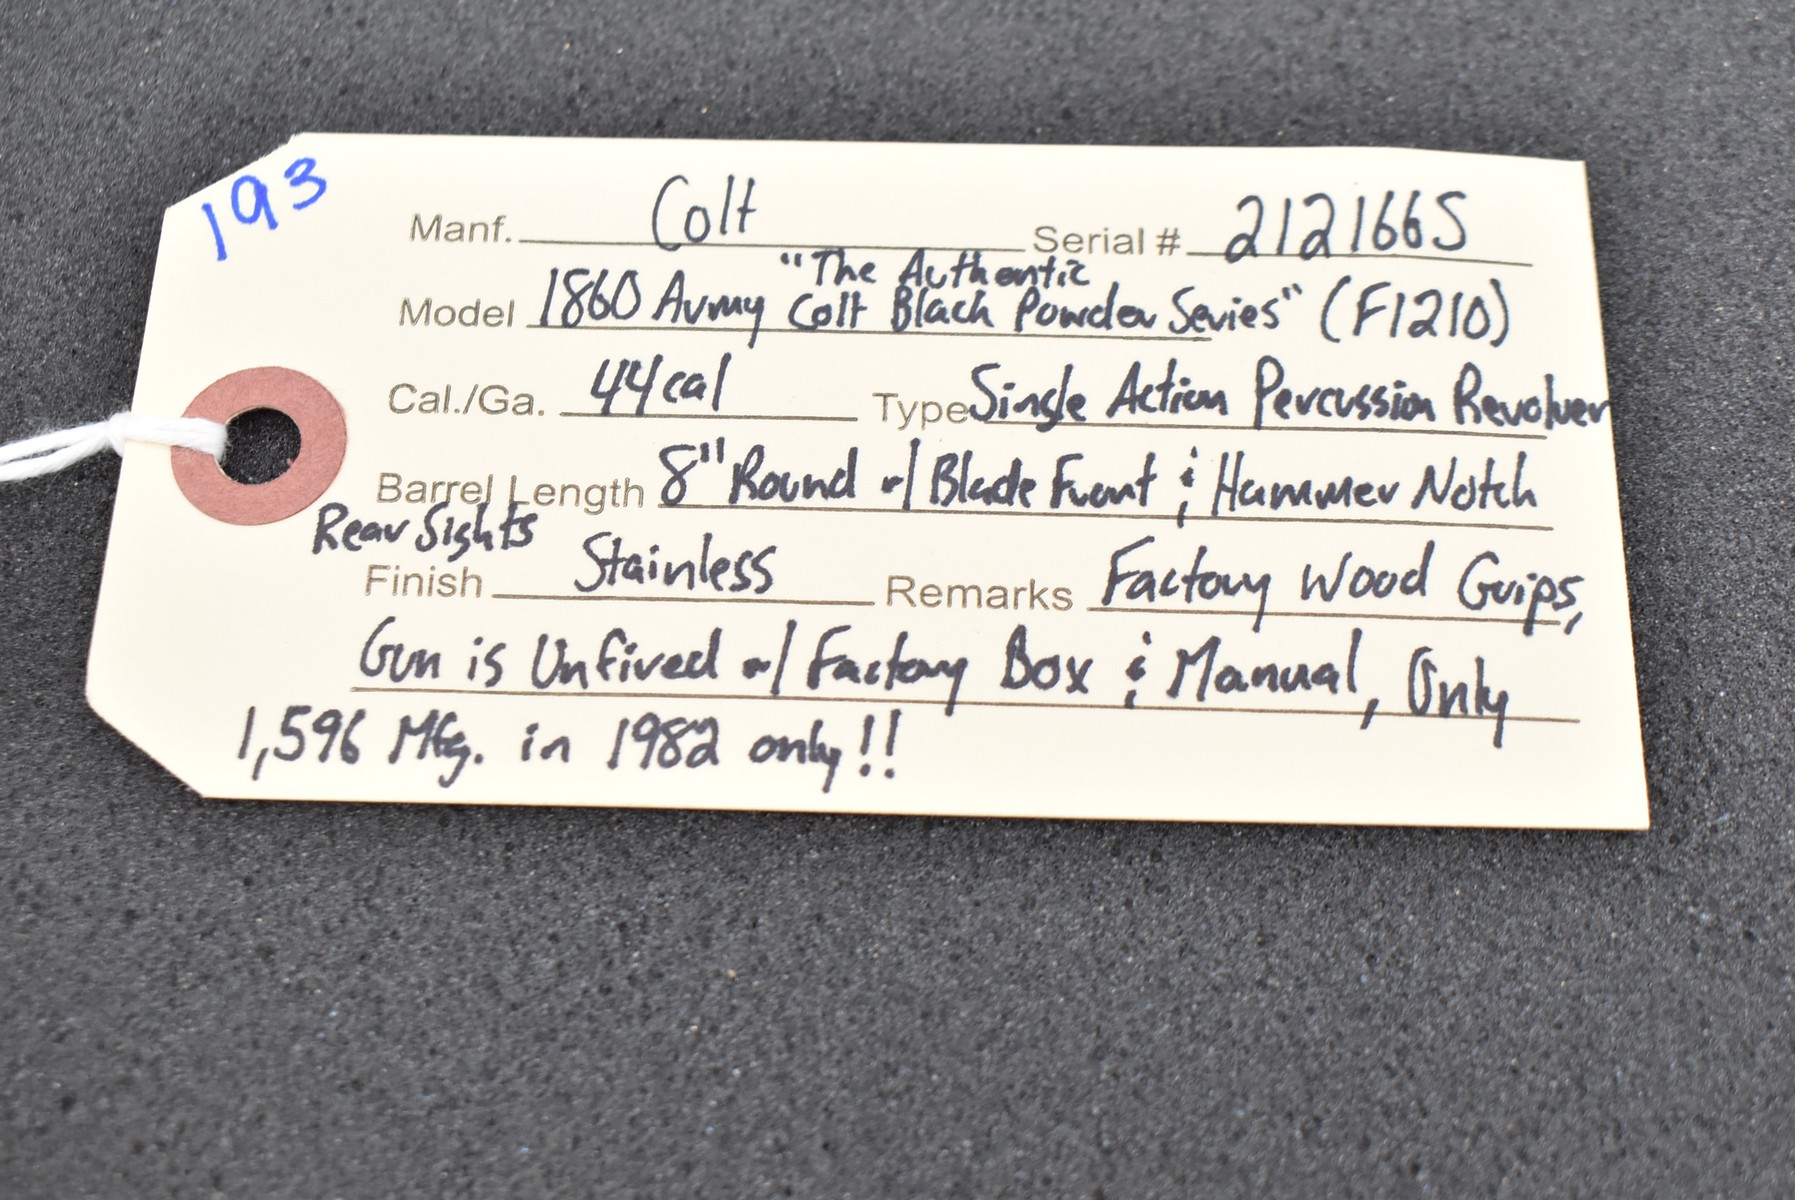 193
Manf. Colt Serial # 212166S
"The Authentic
Model 1860 Army Colt Black Powder Series" (F1210)
Cal./Ga. 44cal Type Single Action Percussion Revolver
Barrel Length 8" Round w/ Blade Front & Hammer Notch
Rear Sights
Finish Stainless Remarks Factory Wood Grips,
Gun is Unfired w/ Factory Box & Manual, Only
1,596 Mfg. in 1982 only!!